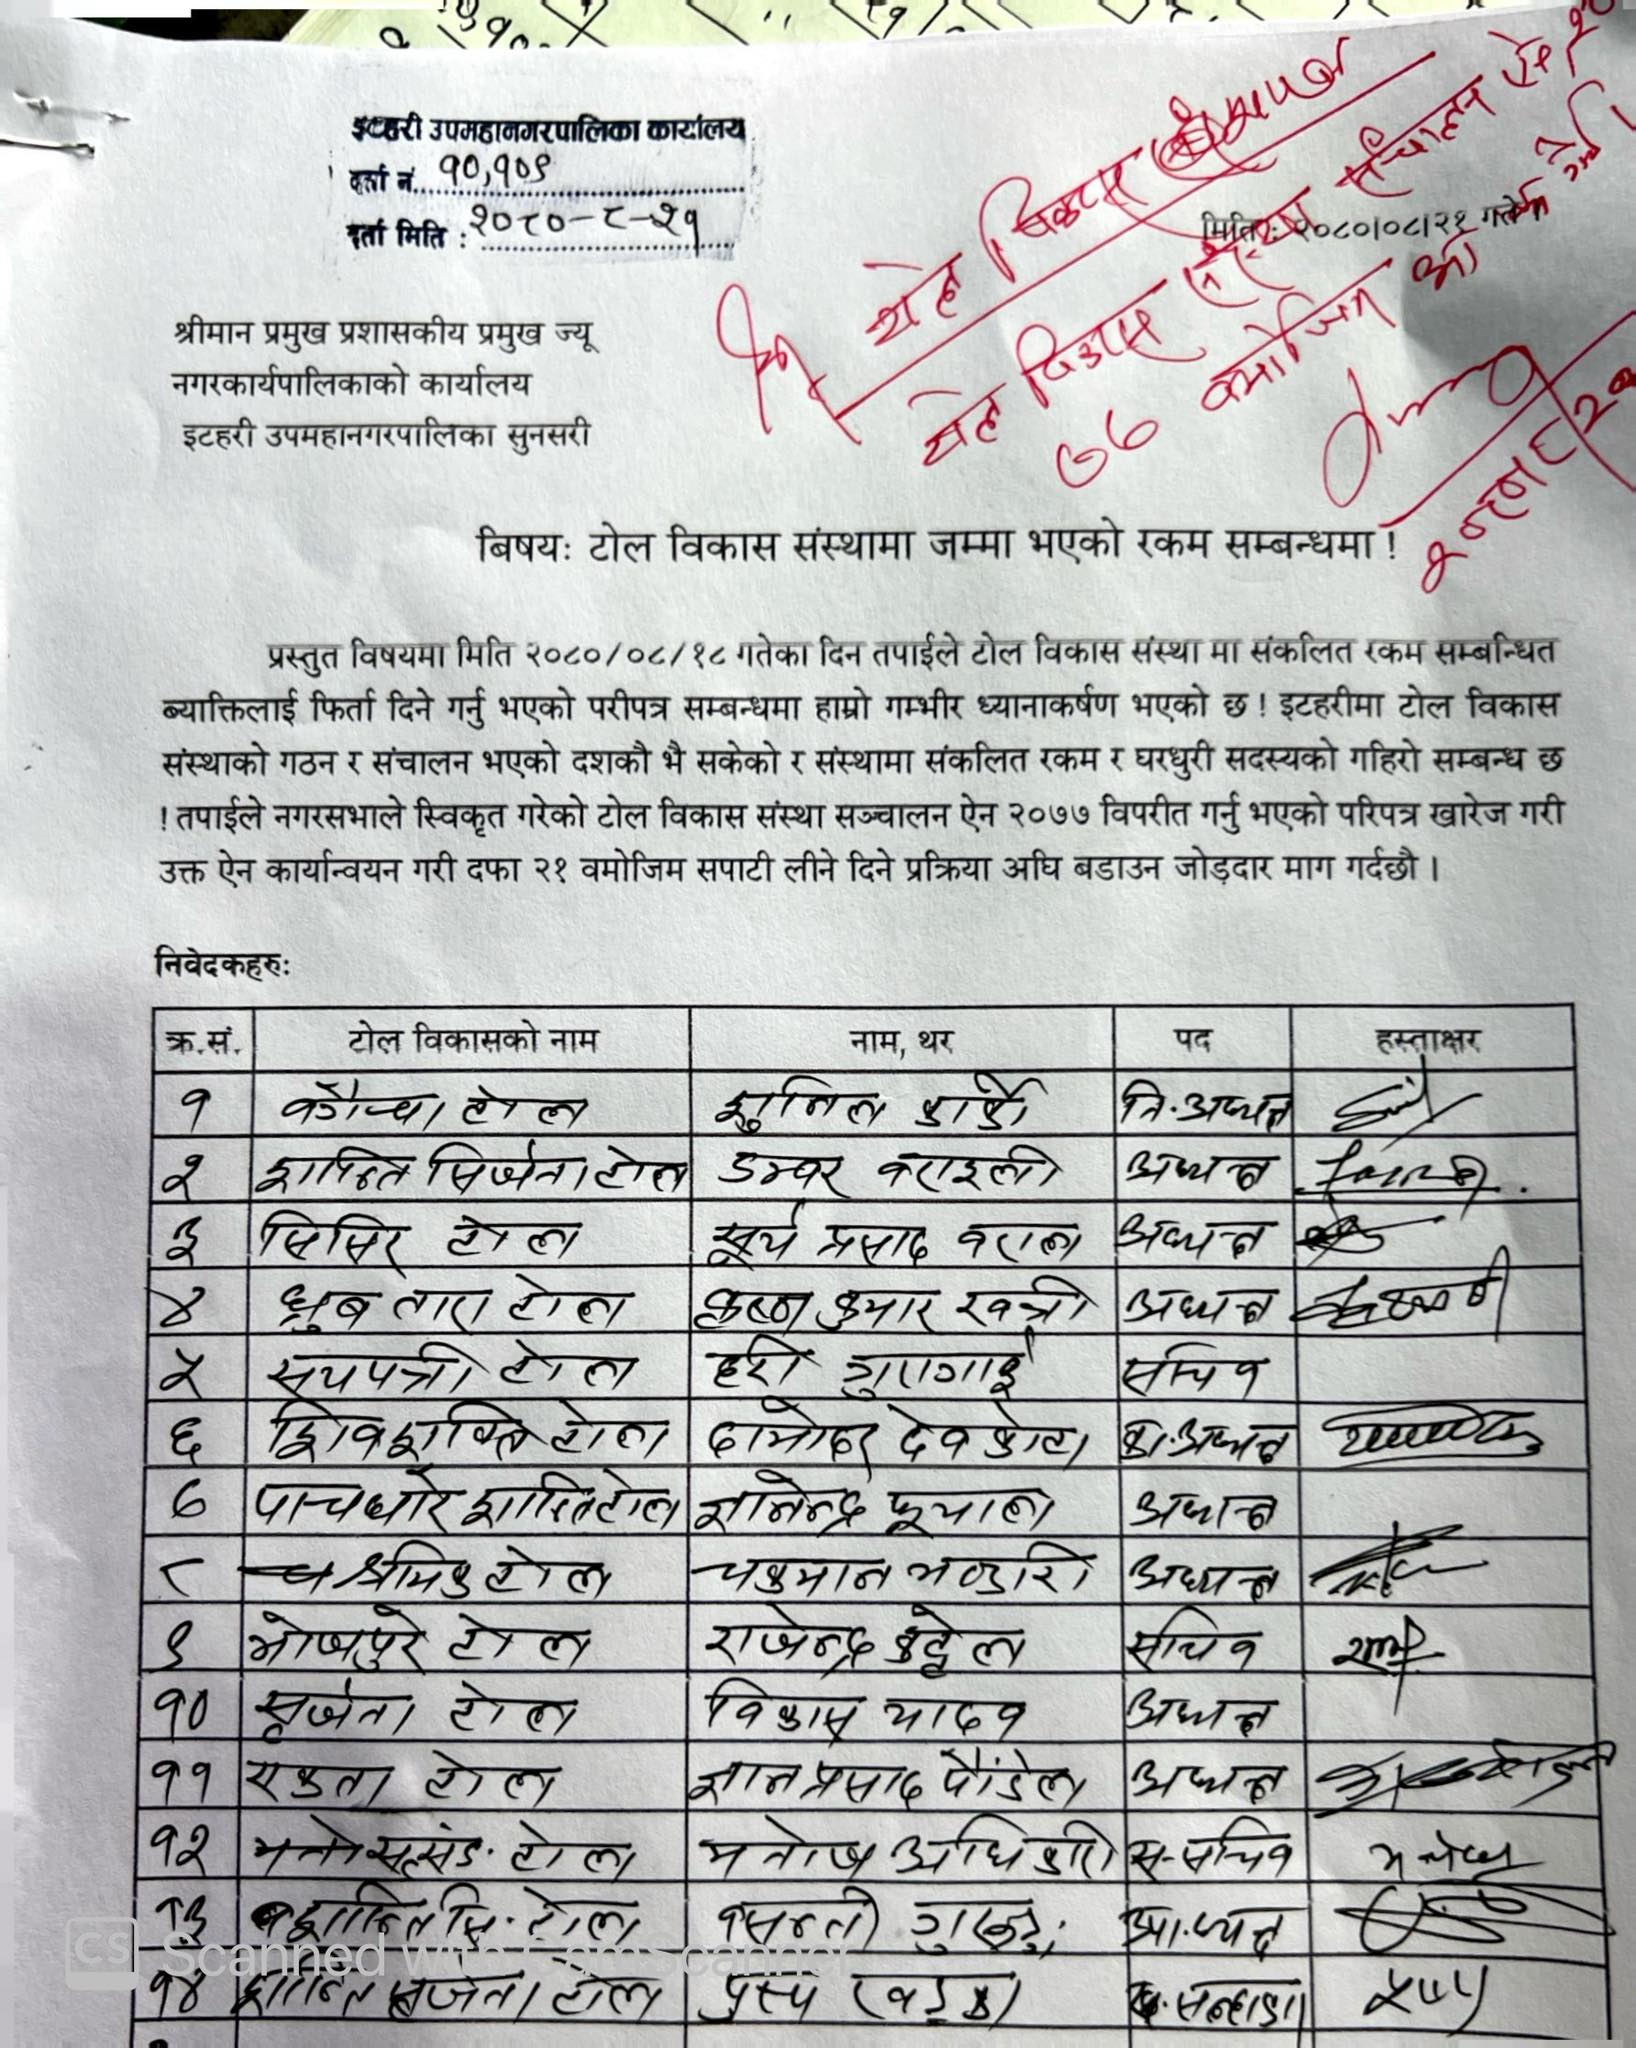 इटहरी उपमहानगरपालिका कार्यालय
दर्ता नं. १०,१०९
दर्ता मिति : २०८०-८-२१
मिति: २०८०।०८।२१ गते
श्रीमान प्रमुख प्रशासकीय प्रमुख ज्यू
नगरकार्यपालिकाको कार्यालय
इटहरी उपमहानगरपालिका सुनसरी
टोल विकास
टोल विकास संस्था संचालन ऐन
७७ बमोजिम
बिषयः टोल विकास संस्थामा जम्मा भएको रकम सम्बन्धमा !
प्रस्तुत विषयमा मिति २०८०/०८/१८ गतेका दिन तपाईले टोल विकास संस्था मा संकलित रकम सम्बन्धित
ब्याक्तिलाई फिर्ता दिने गर्नु भएको परीपत्र सम्बन्धमा हाम्रो गम्भीर ध्यानाकर्षण भएको छ ! इटहरीमा टोल विकास
संस्थाको गठन र संचालन भएको दशकौ भै सकेको र संस्थामा संकलित रकम र घरधुरी सदस्यको गहिरो सम्बन्ध छ
! तपाईले नगरसभाले स्विकृत गरेको टोल विकास संस्था सञ्चालन ऐन २०७७ विपरीत गर्नु भएको परिपत्र खारेज गरी
उक्त ऐन कार्यान्वयन गरी दफा २१ वमोजिम सपाटी लीने दिने प्रक्रिया अघि बडाउन जोड़दार माग गर्दछौ ।
निवेदकहरुः
क्र.सं. टोल विकासको नाम नाम, थर पद हस्ताक्षर
१ टोल सुनिल कार्की नि.अध्यक्ष
२ शान्ति सिर्जना टोल डम्वर वराइली अध्यक्ष
३ सिसिर टोल सूर्य प्रसाद वराल अध्यक्ष
४ ध्रुब तारा टोल कृष्ण कुमार खत्री अध्यक्ष
५ सयपत्री टोल हरी गुरागाई सचिव
६ शिवशक्ति टोल दामोदर देवकोटा का.अध्यक्ष
७ पाचधारे शान्ति टोल ज्ञानेन्द्र फूयाल अध्यक्ष
८ श्रमिक टोल चक्रमान भण्डारी अध्यक्ष
९ भोजपुरे टोल राजेन्द्र कट्टेल सचिव
१० सृर्जना टोल विकास यादव अध्यक्ष
११ एकता टोल ज्ञान प्रसाद पौडेल अध्यक्ष
१२ टोल मनोज अधिकारी स-सचिव
१३ शान्ति सि. टोल वसन्ती अध्यक्ष
१४ शान्ति सृजना टोल पुस्प खड्का